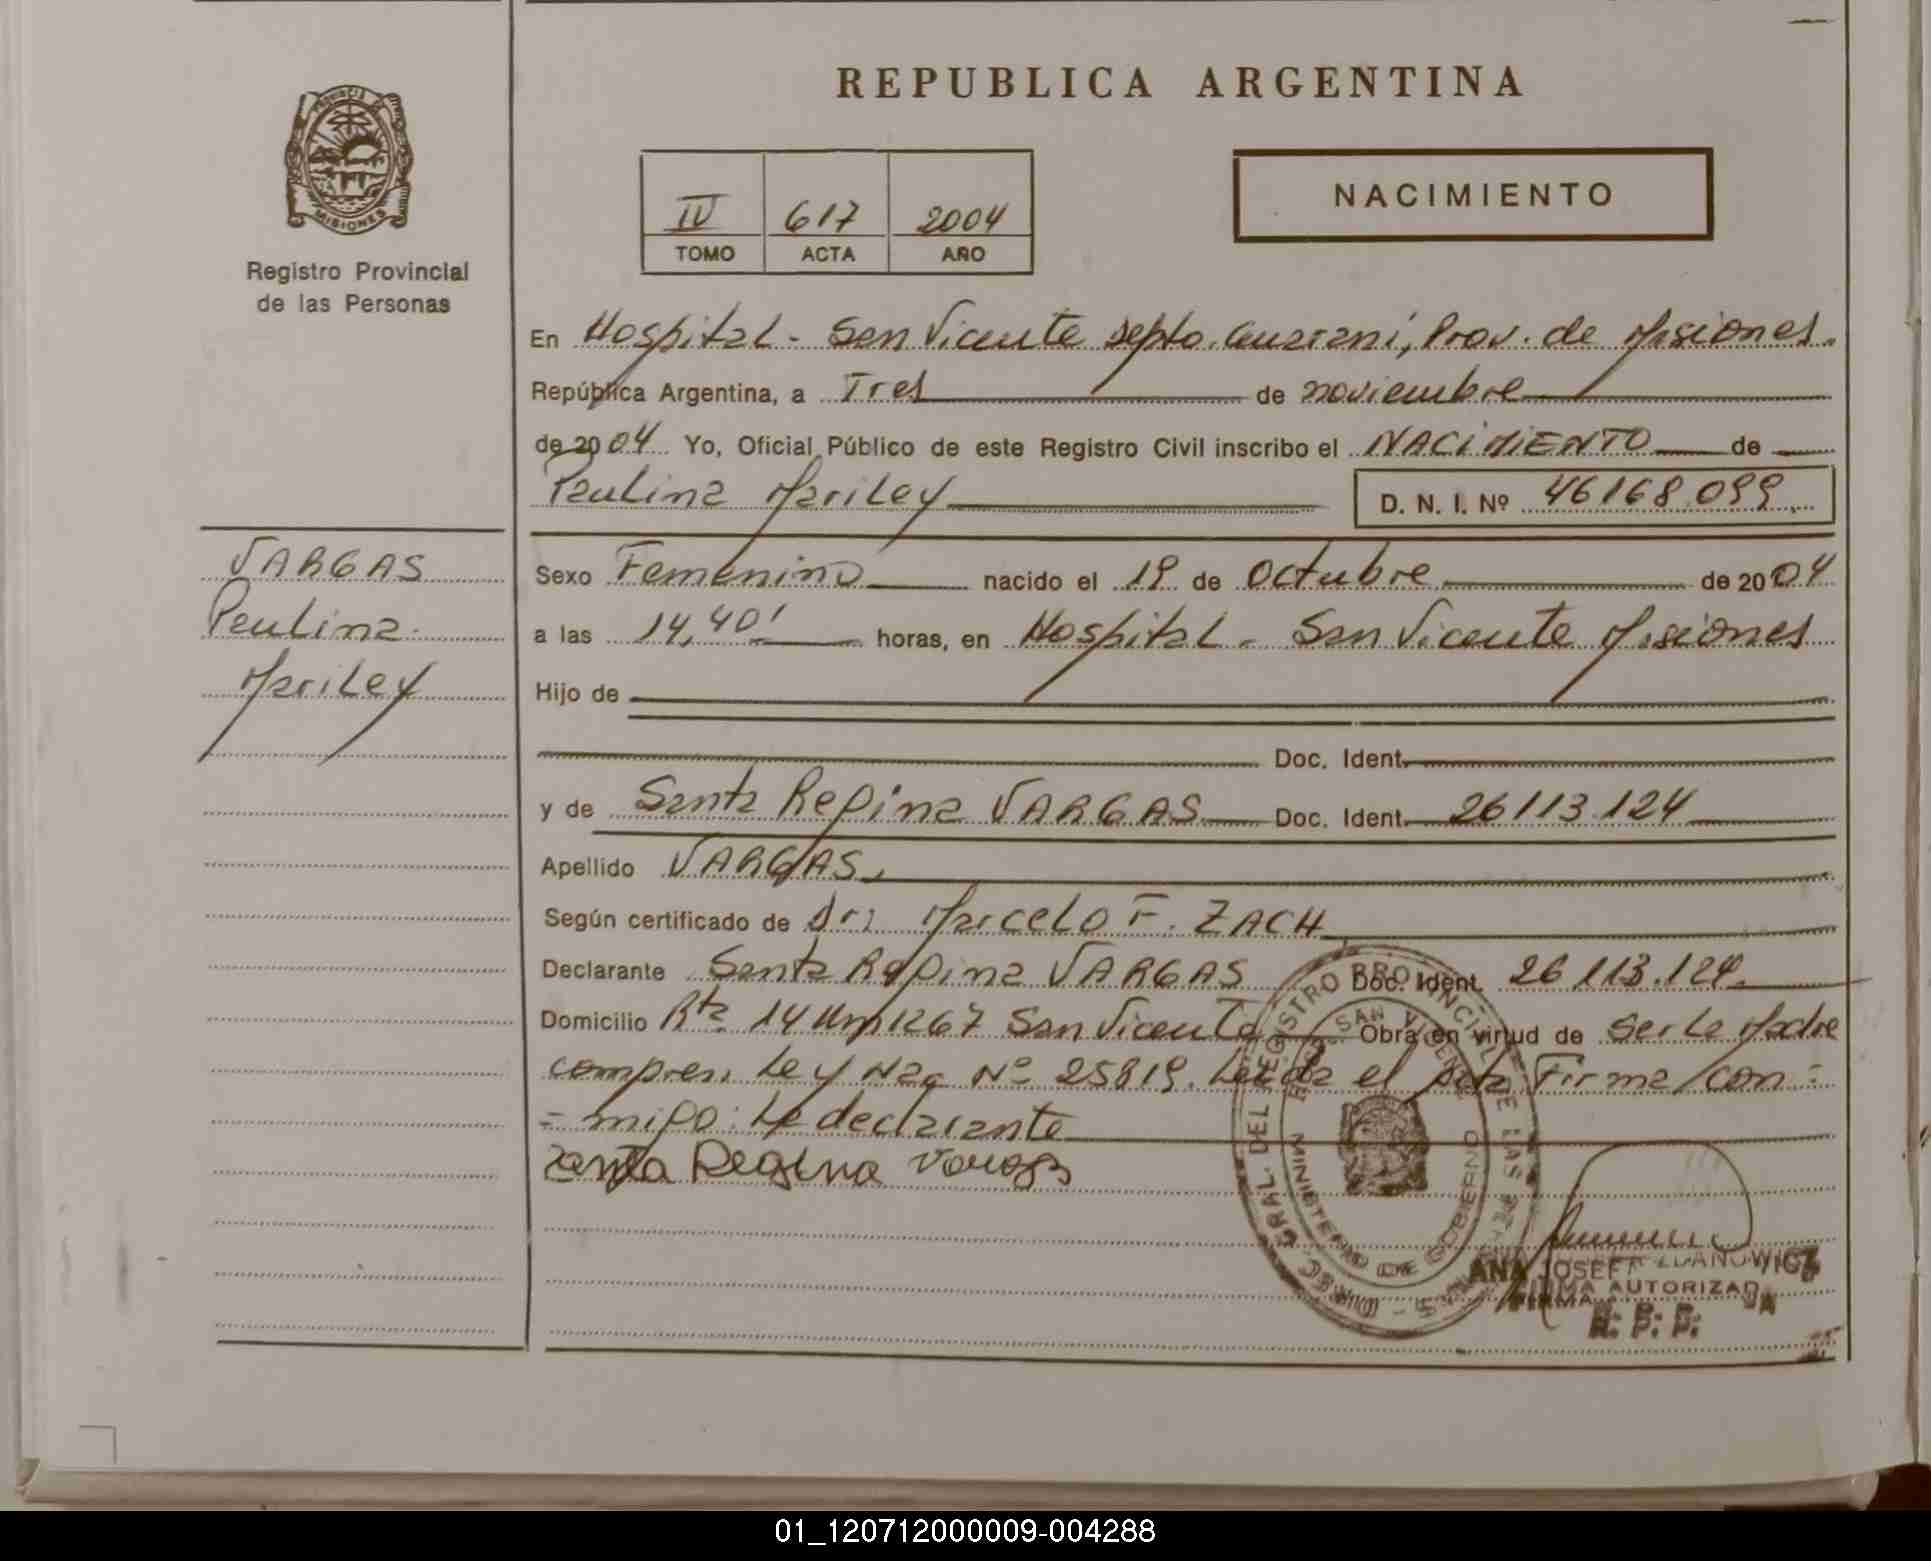 REPUBLICA ARGENTINA
PROVINCIA DE
MISIONES
Registro Provincial
de las Personas
IV 617 2004
TOMO ACTA AÑO
NACIMIENTO
En Hospital - San Vicente Depto. Guaraní, Prov. de Misiones.
República Argentina, a Tres de noviembre
de 2004 Yo, Oficial Público de este Registro Civil inscribo el NACIMIENTO de
Paulina Mariley D. N. I. Nº 46168.099
VARGAS
Paulina
Mariley
Sexo Femenino nacido el 19 de Octubre de 2004
a las 14,40' horas, en Hospital - San Vicente Misiones
Hijo de
Doc. Ident.
y de Santa Regina VARGAS Doc. Ident. 26113.124
Apellido VARGAS.
Según certificado de Dr: Marcelo F. ZACH
Declarante Santa Regina VARGAS Doc. Ident. 26.113.124.
Domicilio Rta. 14 Km 1267 San Vicente Obra en virtud de Ser la Madre
compren. Ley Nac Nº 25819. Leída el acta Firma con=
=migo: La declarante
Santa Regina Vargas
REGISTRO PROVINCIAL DE LAS
SAN VICENTE
MINISTERIO DE GOBIERNO
GRAL. DEL
ANA JOSEFA ZDANOWICZ
FIRMA AUTORIZADA
R. P. P.
01_120712000009-004288